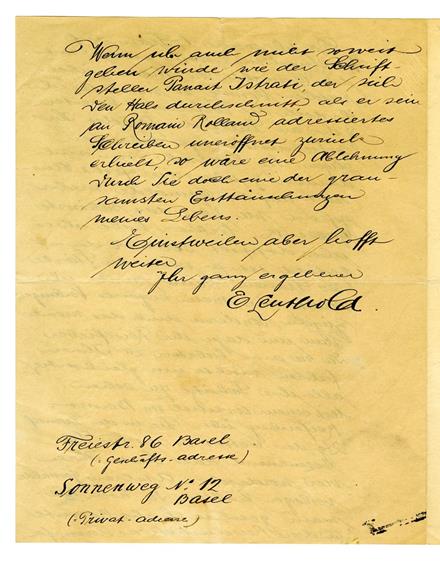 Wenn ich auch nicht soweit
gehen würde wie der Schrift-
steller Panait Istrati, der sich
den Hals durchschnitt, als er sein
an Romain Rolland adressiertes
Schreiben uneröffnet zurück
erhielt, so wäre eine Ablehnung
durch Sie doch eine der grau-
samsten Enttäuschungen
meines Lebens.
Einstweilen aber hofft
weiter
Ihr ganz ergebener
E Leuthold
Freiestr. 86 Basel
(: Geschäfts-adresse)
Sonnenweg No. 12
Basel
(: Privat-adresse)